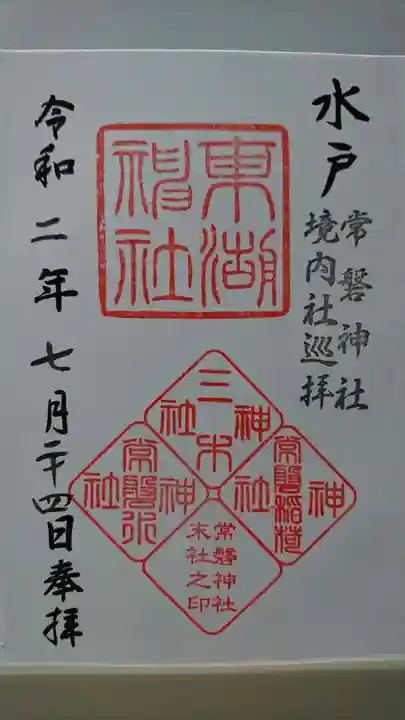 水戸
常磐神社
境内社巡拝
東湖
神社
三木
神社
常磐稲荷
神社
常磐水
神社
常磐神社
末社之印
令和二年七月二十四日奉拝